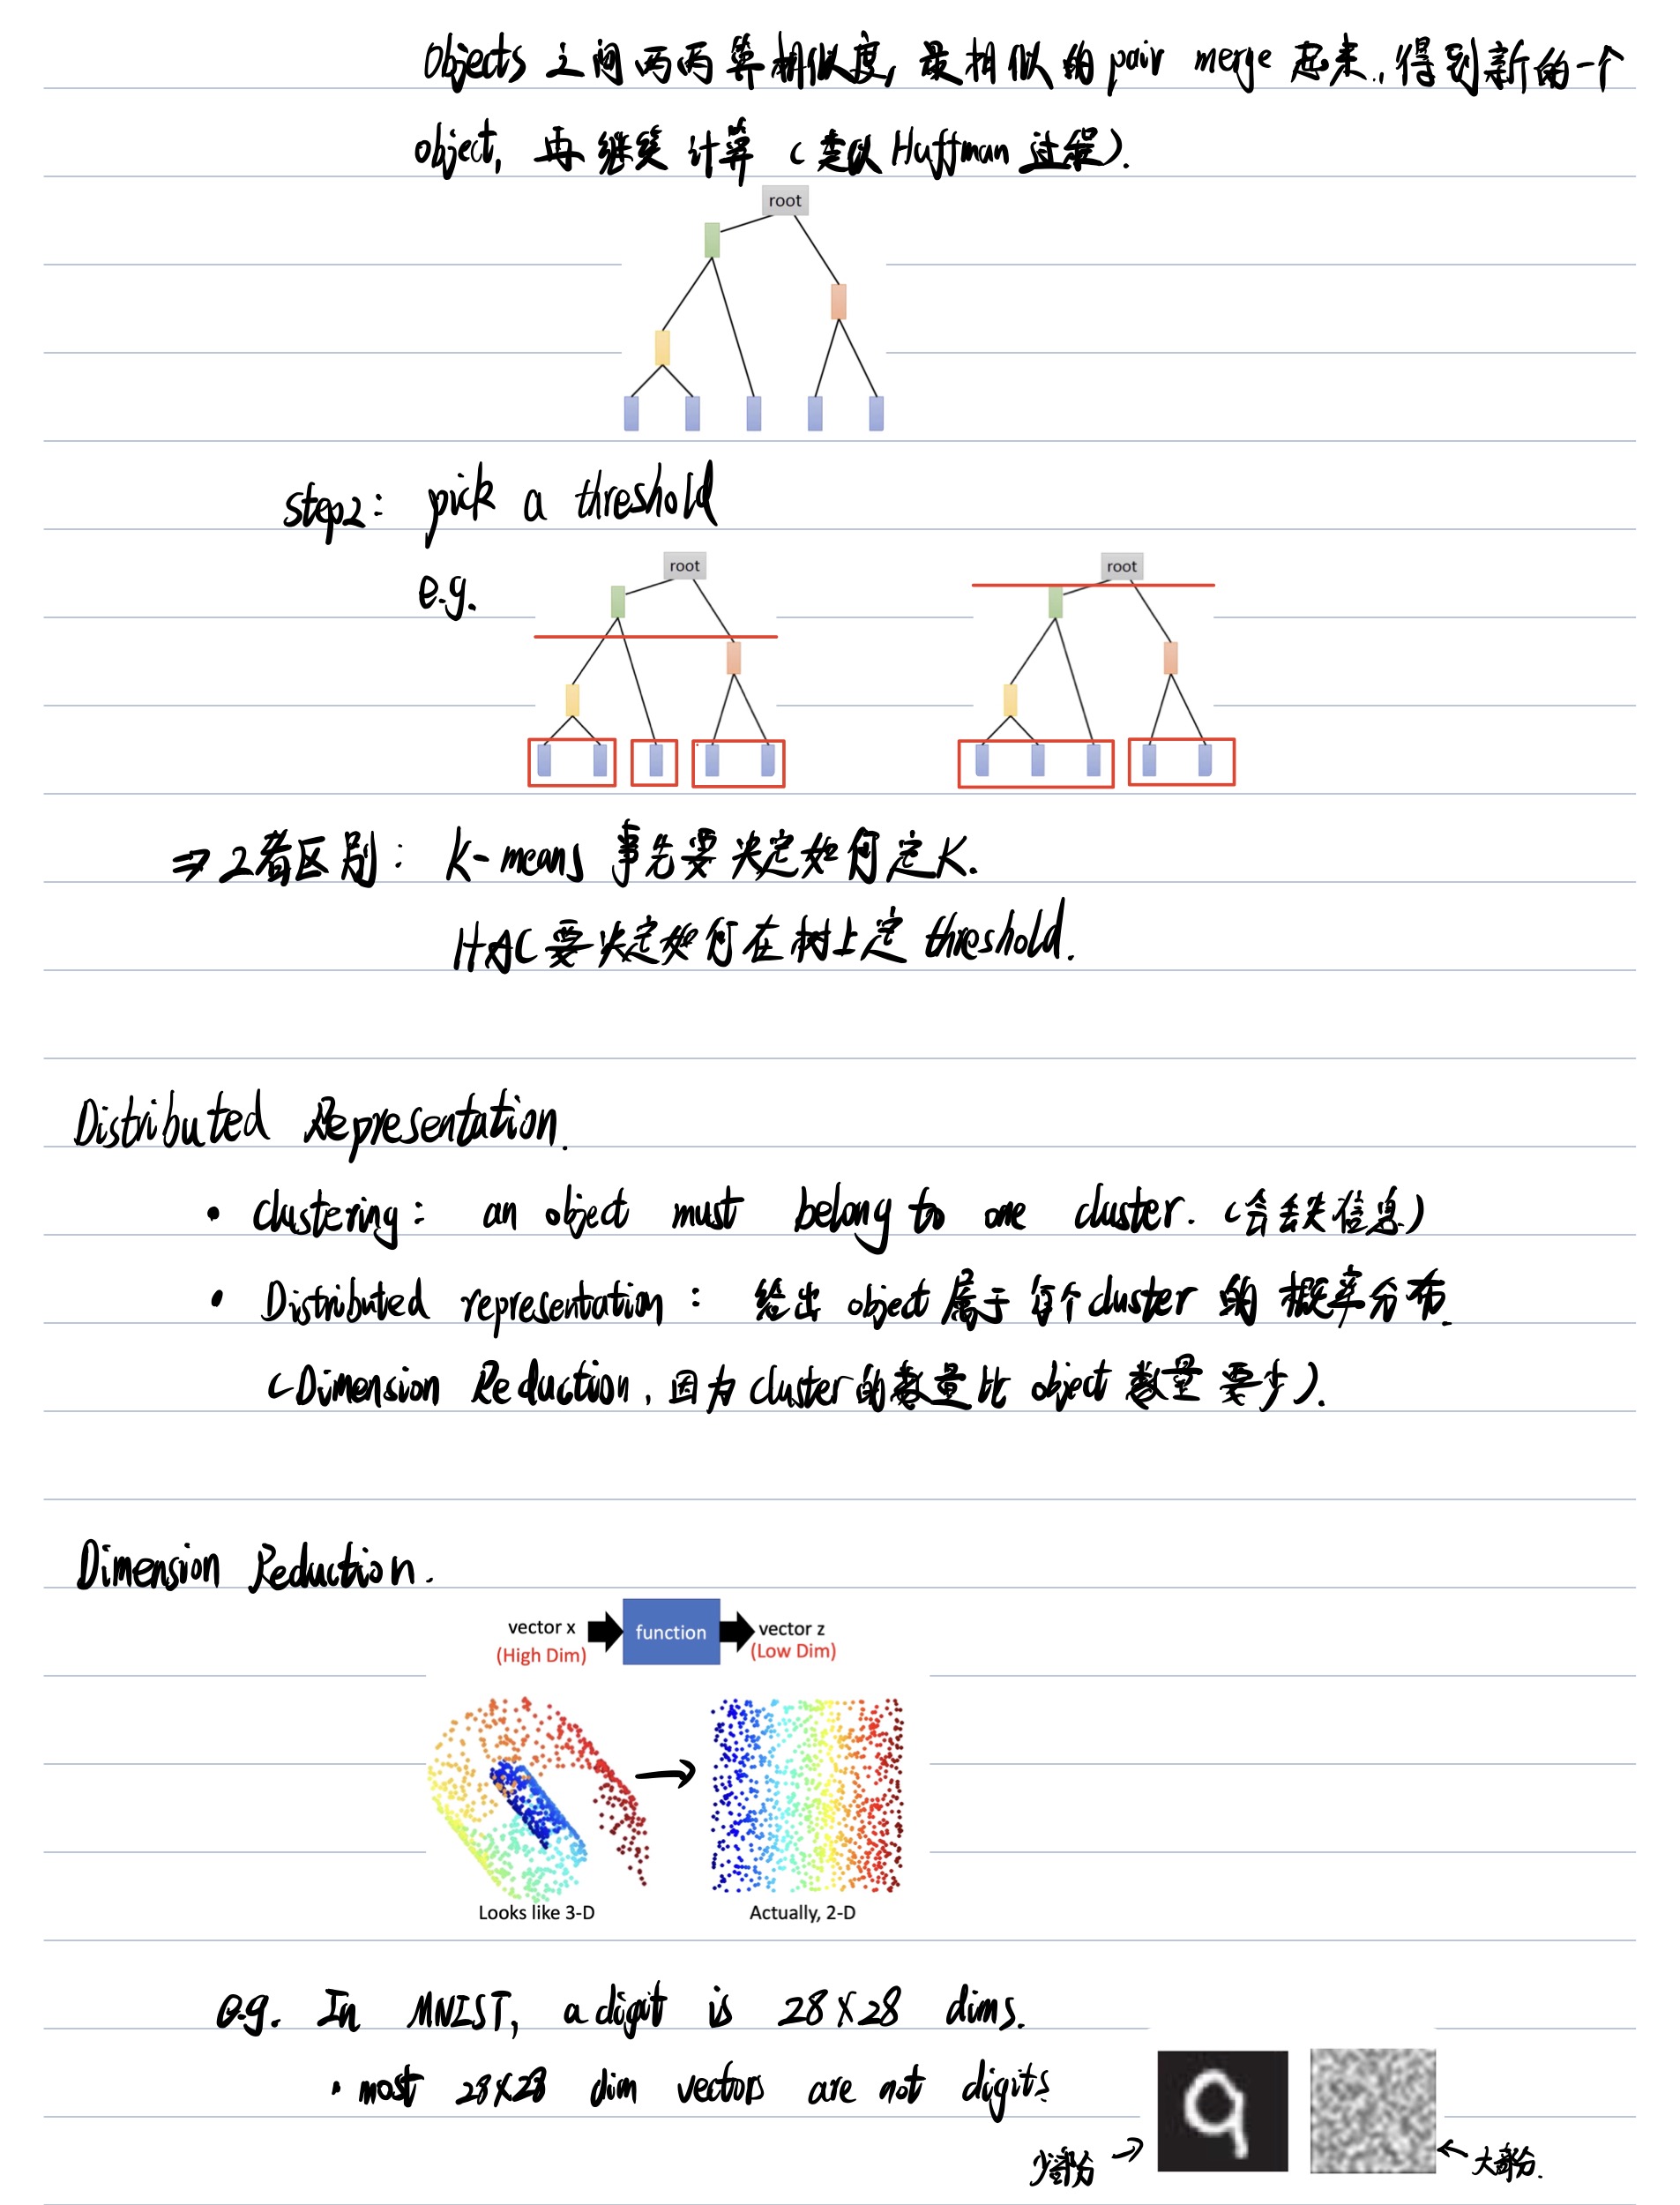 Objects 之间两两算相似度, 最相似的 pair merge 起来, 得到新的一个
object, 再继续计算 (类似 Huffman 过程).
root
step2: pick a threshold
e.g.
root
root
⇒ 2者区别: K-means 事先要决定如何定K.
HAC要决定如何在树上定 threshold.
Distributed Representation.
• clustering: an object must belong to one cluster. (会丢失信息)
• Distributed representation: 给出 object 属于每个cluster 的 概率分布.
(Dimension Reduction, 因为 cluster的数量比 object 数量要少).
Dimension Reduction.
vector x
(High Dim)
function
vector z
(Low Dim)
Looks like 3-D
Actually, 2-D
e.g. In MNIST, a digit is 28×28 dims.
• most 28×28 dim vectors are not digits
少部分 →
← 大部分.